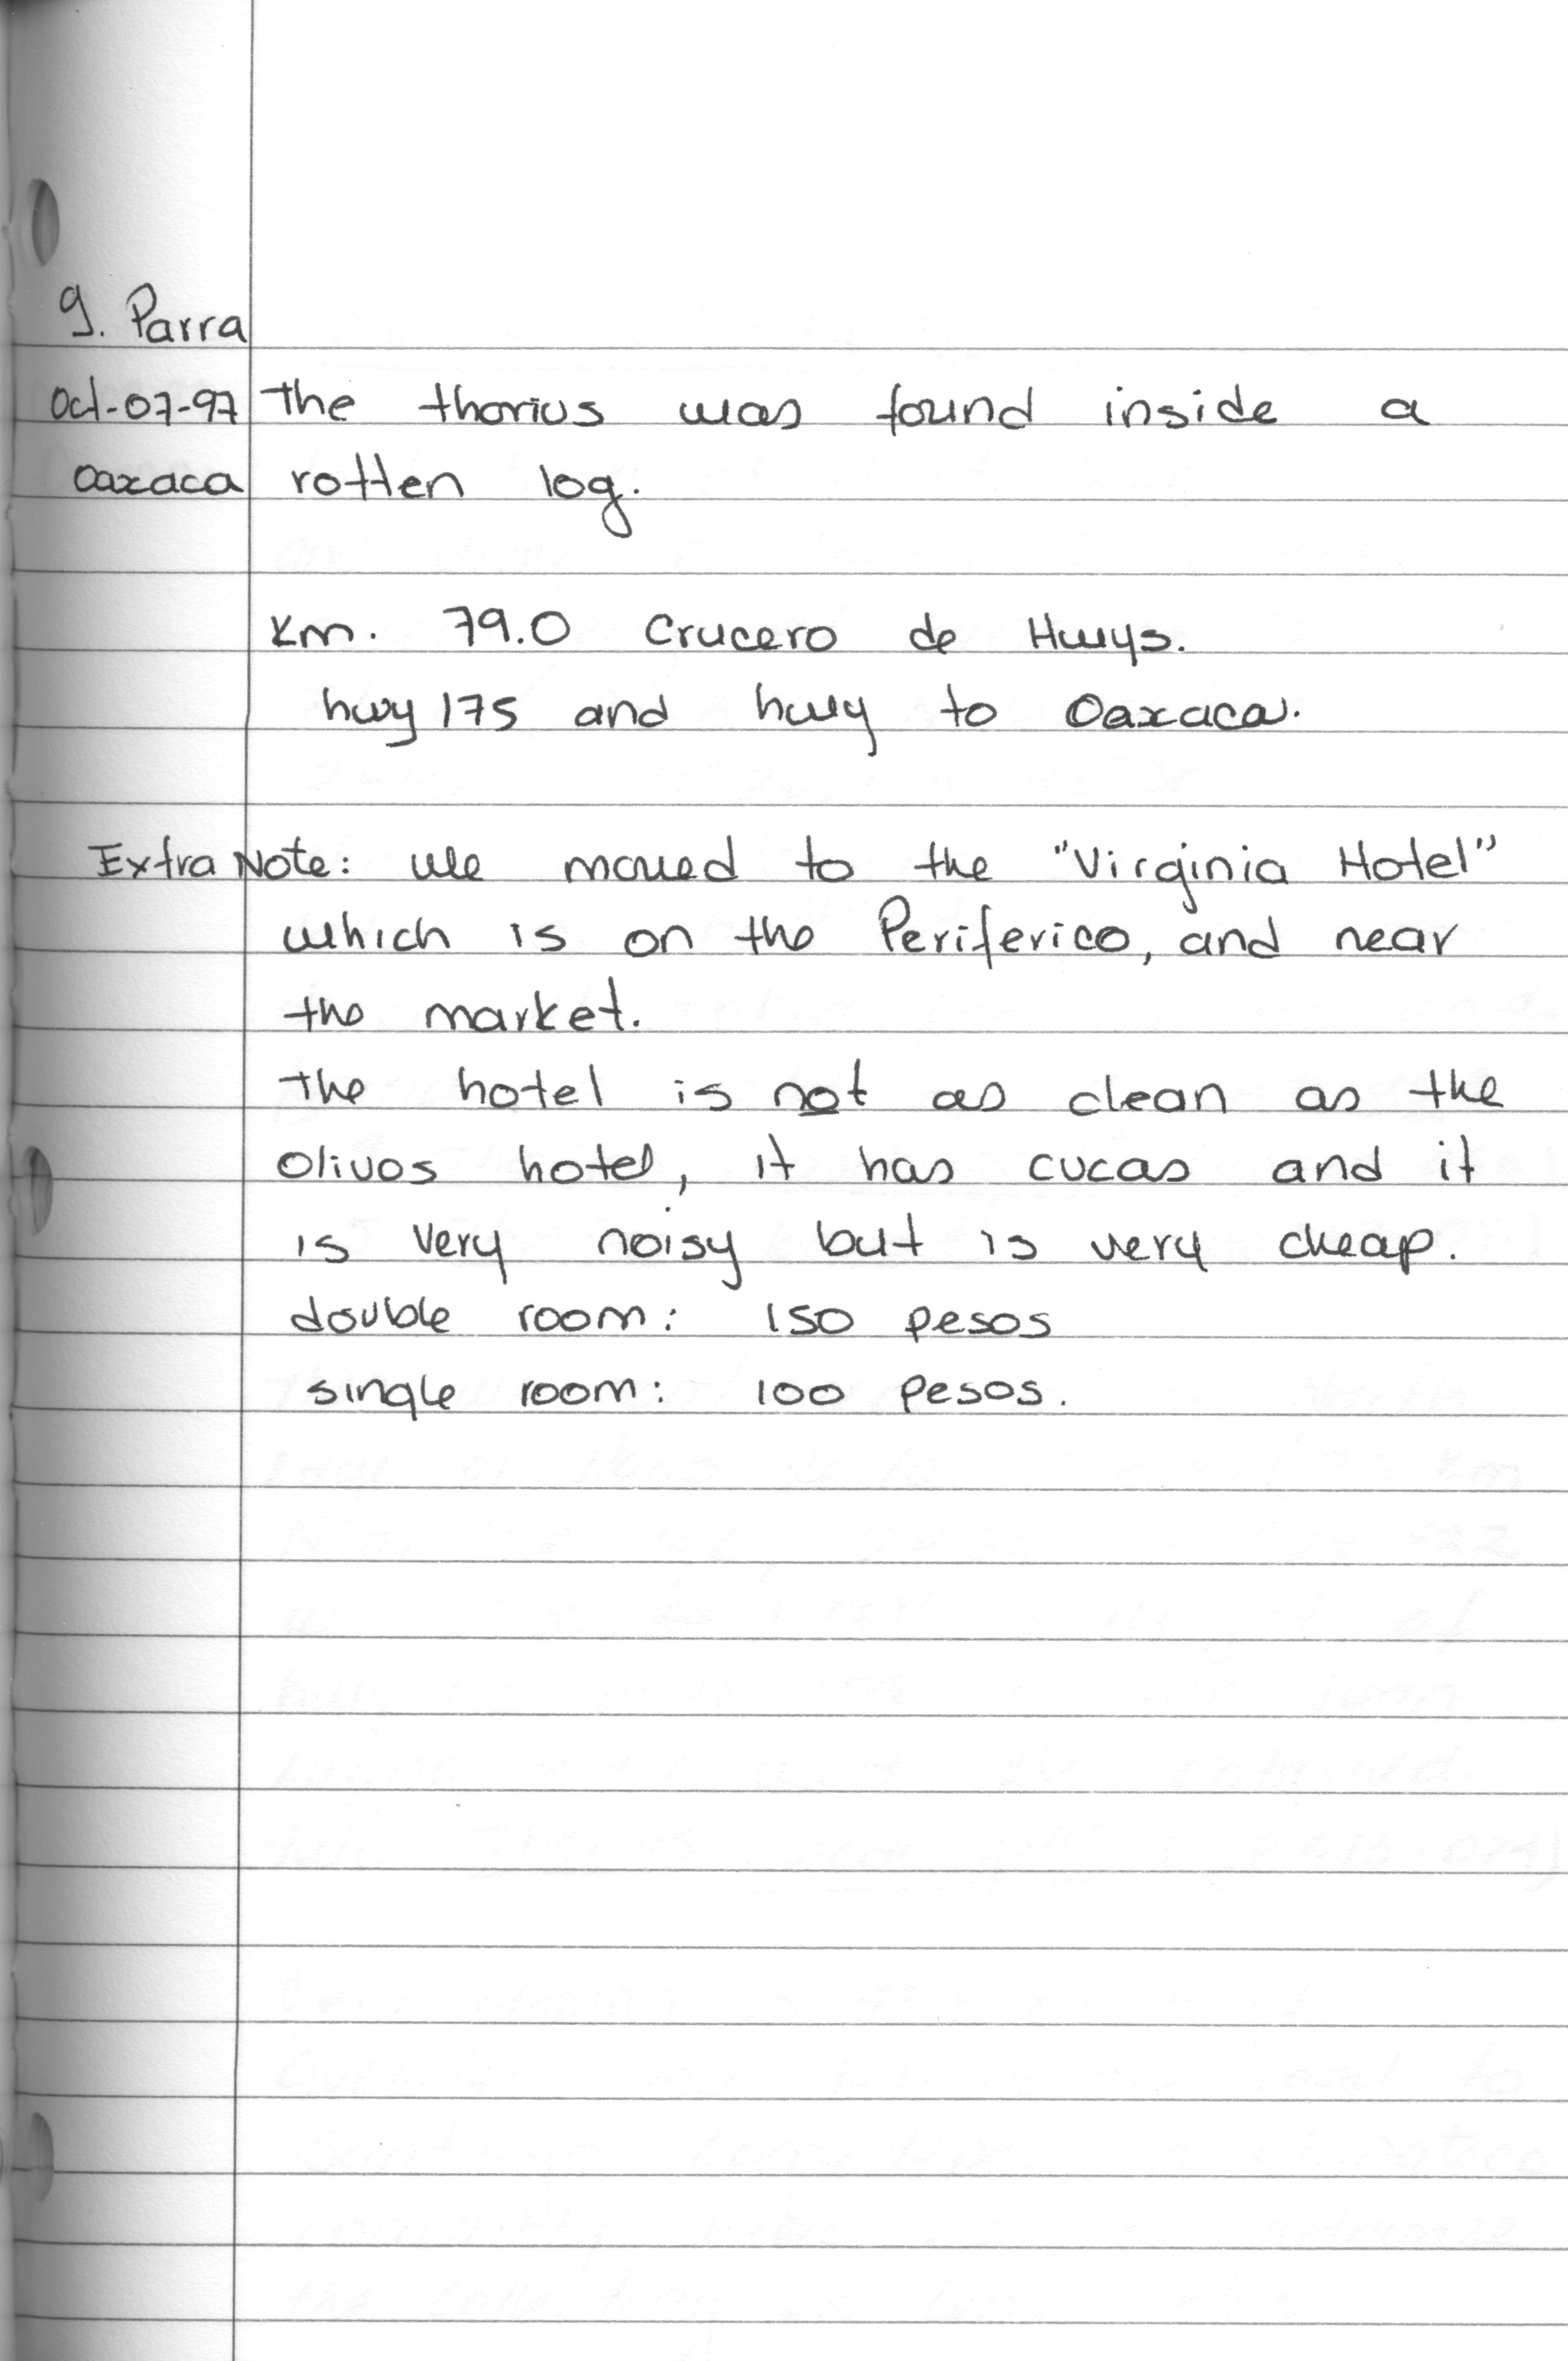 G. Parra
Oct-07-97 The thorius was found inside a
Oaxaca rotten log.
Km. 79.0 Crucero de Hwys.
hwy 175 and hwy to Oaxaca.
Extra Note: We moved to the "Virginia Hotel"
which is on the Periferico, and near
the market.
The hotel is not as clean as the
Olivos hotel, it has cucas and it
is very noisy but is very cheap.
double room: 150 pesos
single room: 100 pesos.